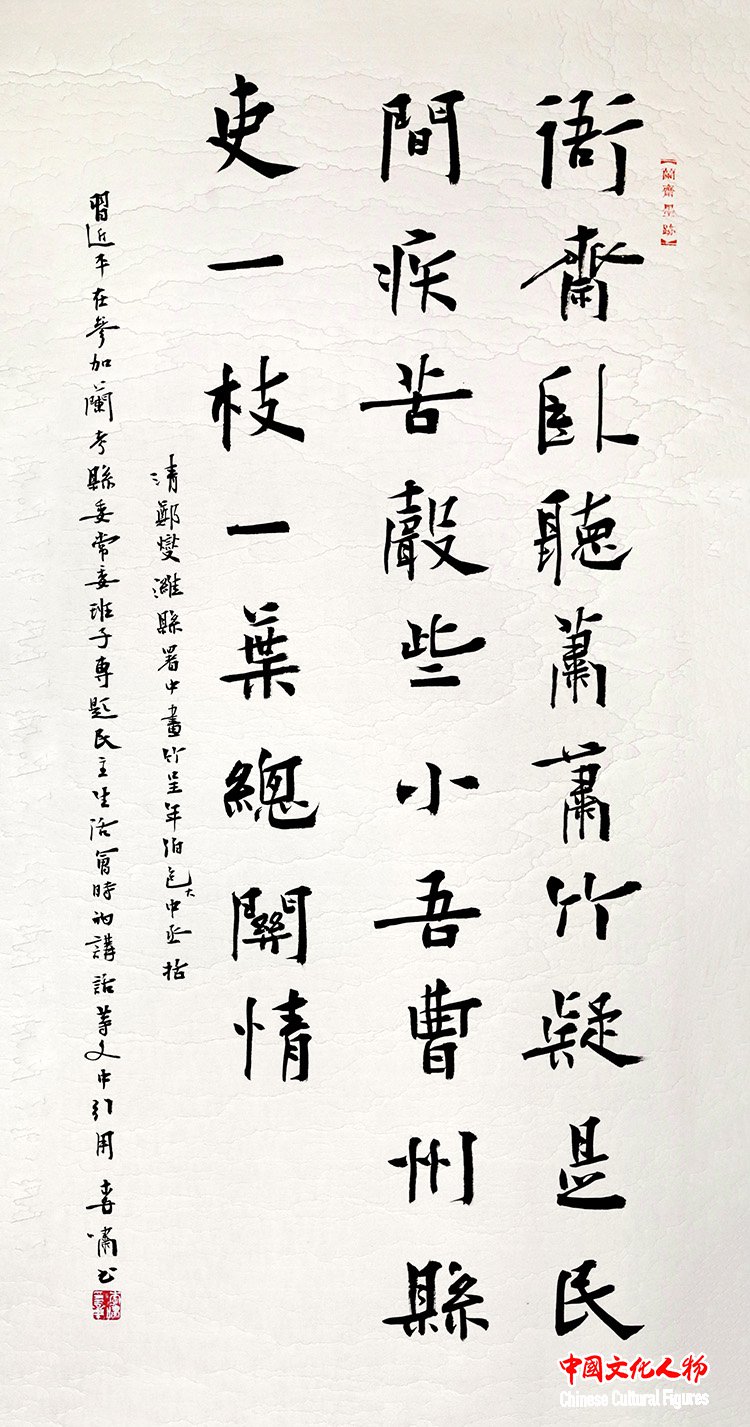 【蘭齋墨跡】
衙齋臥聽蕭蕭竹疑是民
間疾苦聲些小吾曹州縣
吏一枝一葉總關情
清鄭燮濰縣署中畫竹呈年伯包大中丞括
習近平在參加蘭考縣委常委班子專題民主生活會時的講話等文中引用 李嘯书
中國文化人物
Chinese Cultural Figures